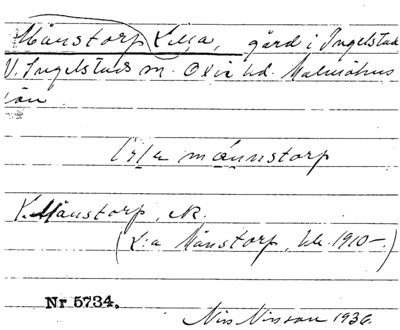 Månstorp Lilla, gård i Ingelstad
V. Ingelstads sn. Oxie hd. Malmöhus
län
lı̨lɐ månnstorp
L. Månstorp, Nr.
(L:a Månstorp, 1910-.)
Nr 5734.
Nils Nilsson 1936.